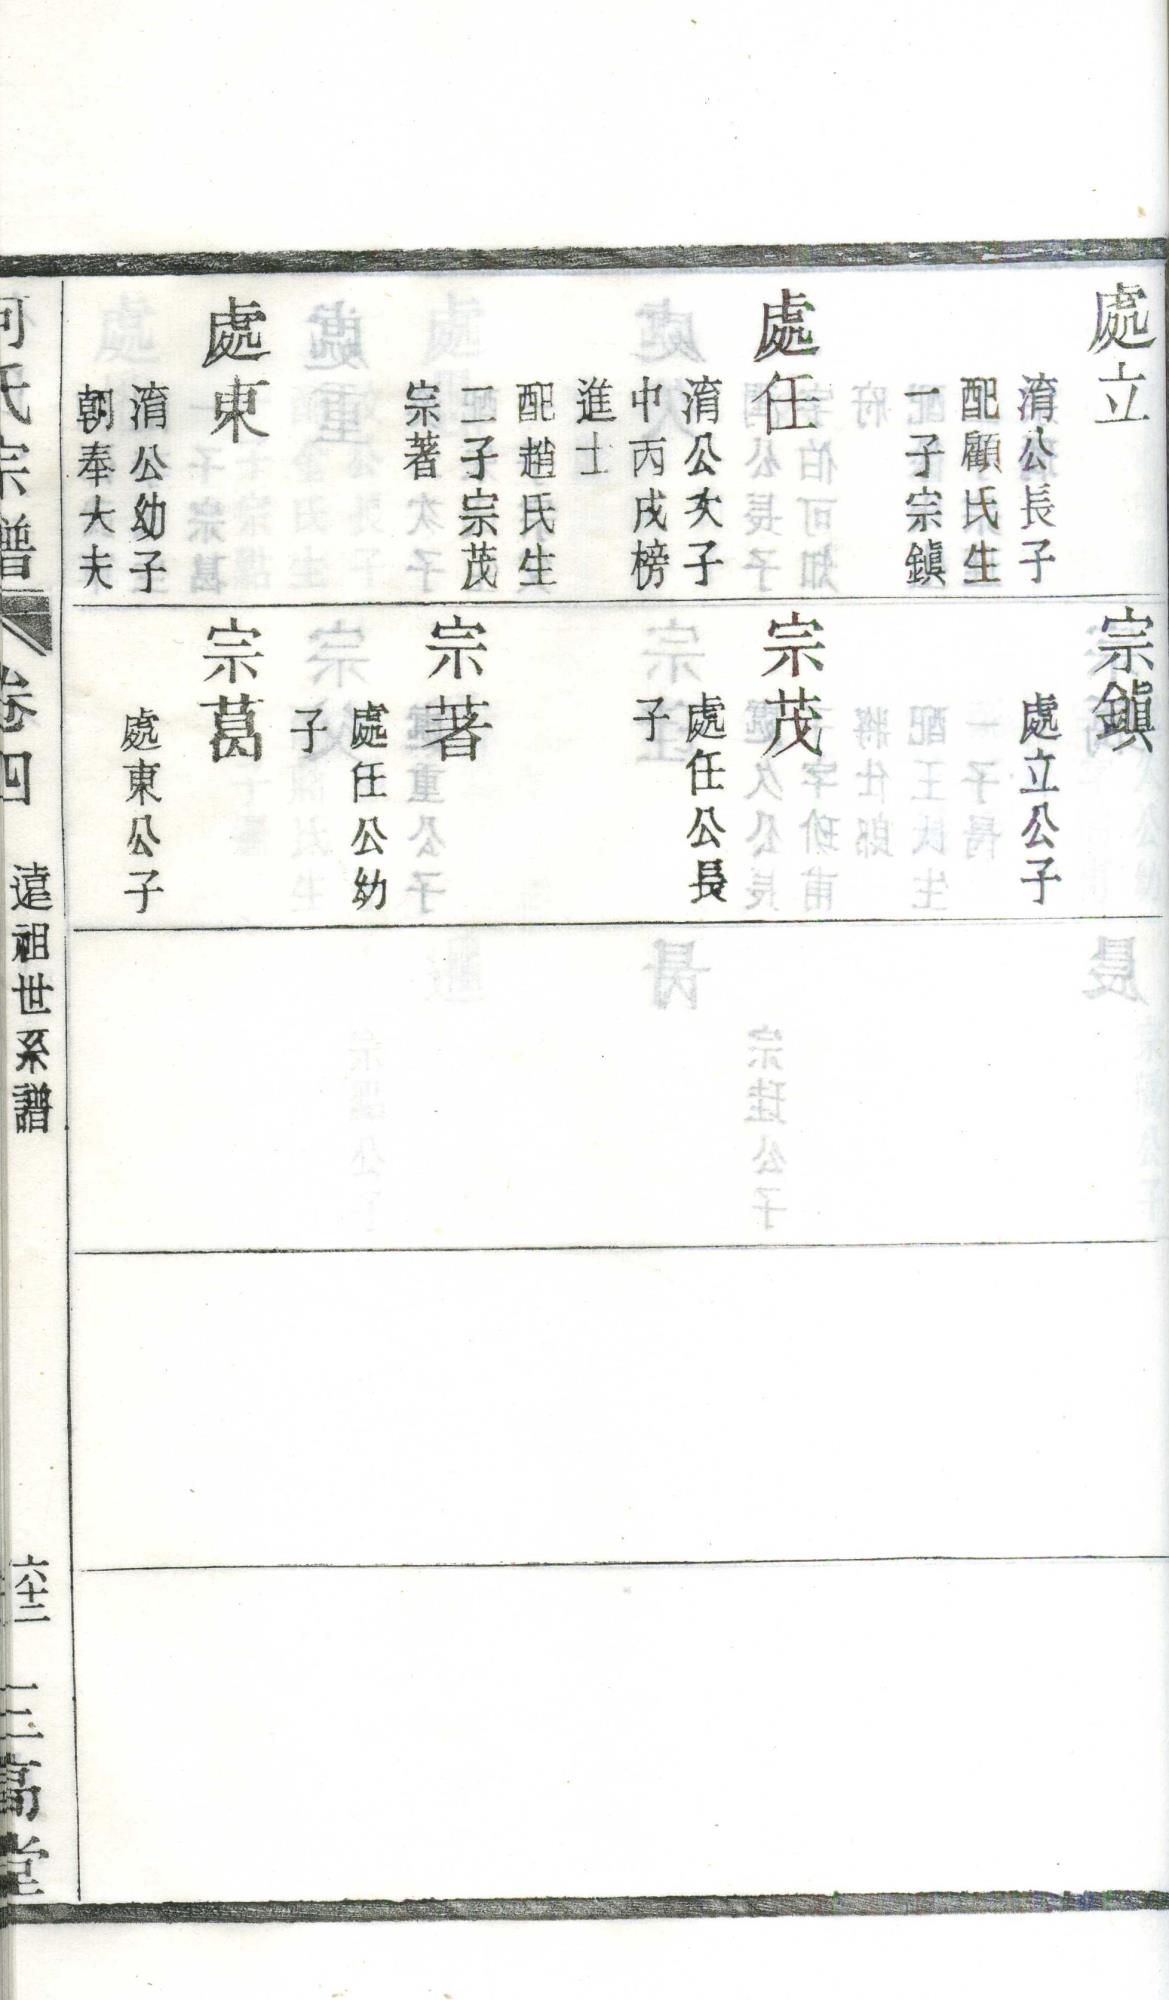 處立
淯公長子
配顧氏生
一子宗鎭
處任
淯公次子
中丙戌榜
進士
配趙氏生
二子宗茂
宗著
處東
淯公幼子
朝奉大夫
宗鎭
處立公子
宗茂
處任公長
子
宗著
處任公幼
子
宗葛
處東公子
何氏宗譜
卷四
遠祖世系譜
六十二
三高堂